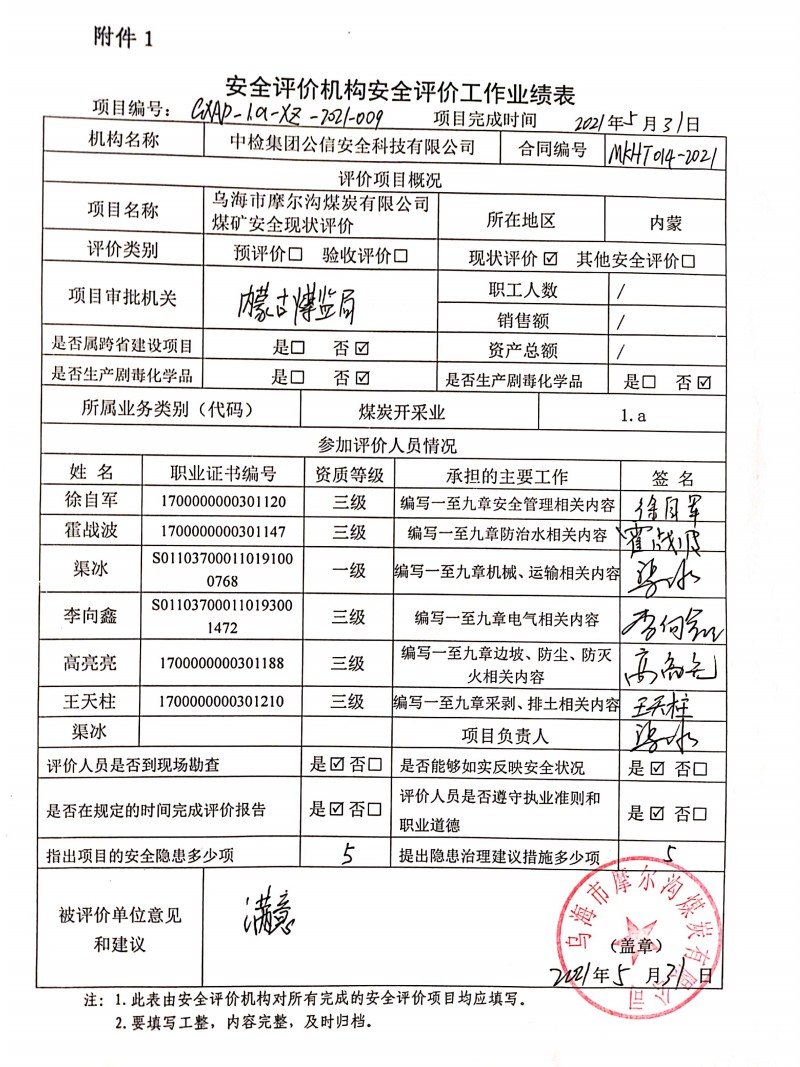 附件 1
安全评价机构安全评价工作业绩表
项目编号： GXAP-1.a-XZ-2021-009 项目完成时间 2021年5月31日
机构名称 中检集团公信安全科技有限公司 合同编号 MKHT014-2021
评价项目概况
项目名称 乌海市摩尔沟煤炭有限公司煤矿安全现状评价 所在地区 内蒙
评价类别 预评价□ 验收评价□ 现状评价☑ 其他安全评价□
项目审批机关 内蒙古煤监局 职工人数 /
销售额 /
是否属跨省建设项目 是□ 否☑ 资产总额 /
是否生产剧毒化学品 是□ 否☑ 是否生产剧毒化学品 是□ 否☑
所属业务类别（代码） 煤炭开采业 1.a
参加评价人员情况
姓 名 职业证书编号 资质等级 承担的主要工作 签 名
徐自军 1700000000301120 三级 编写一至九章安全管理相关内容 徐自军
霍战波 1700000000301147 三级 编写一至九章防治水相关内容 霍战波
渠冰 S011037000110191000768 一级 编写一至九章机械、运输相关内容 渠冰
李向鑫 S011037000110193001472 三级 编写一至九章电气相关内容 李向鑫
高亮亮 1700000000301188 三级 编写一至九章边坡、防尘、防灭火相关内容 高亮亮
王天柱 1700000000301210 三级 编写一至九章采剥、排土相关内容 王天柱
渠冰 项目负责人 渠冰
评价人员是否到现场勘查 是☑否□ 是否能够如实反映安全状况 是☑ 否□
是否在规定的时间完成评价报告 是☑否□ 评价人员是否遵守执业准则和职业道德 是☑ 否□
指出项目的安全隐患多少项 5 提出隐患治理建议措施多少项 5
被评价单位意见和建议 满意
乌海市摩尔沟煤炭有限公司
（盖章）
2021年5月31日
注：1.此表由安全评价机构对所有完成的安全评价项目均应填写。
2.要填写工整，内容完整，及时归档。